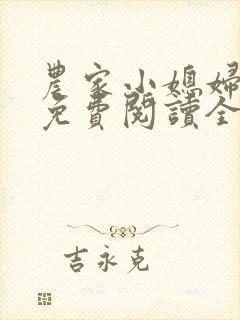 農家小媳婦
免費閱讀全
吉永克